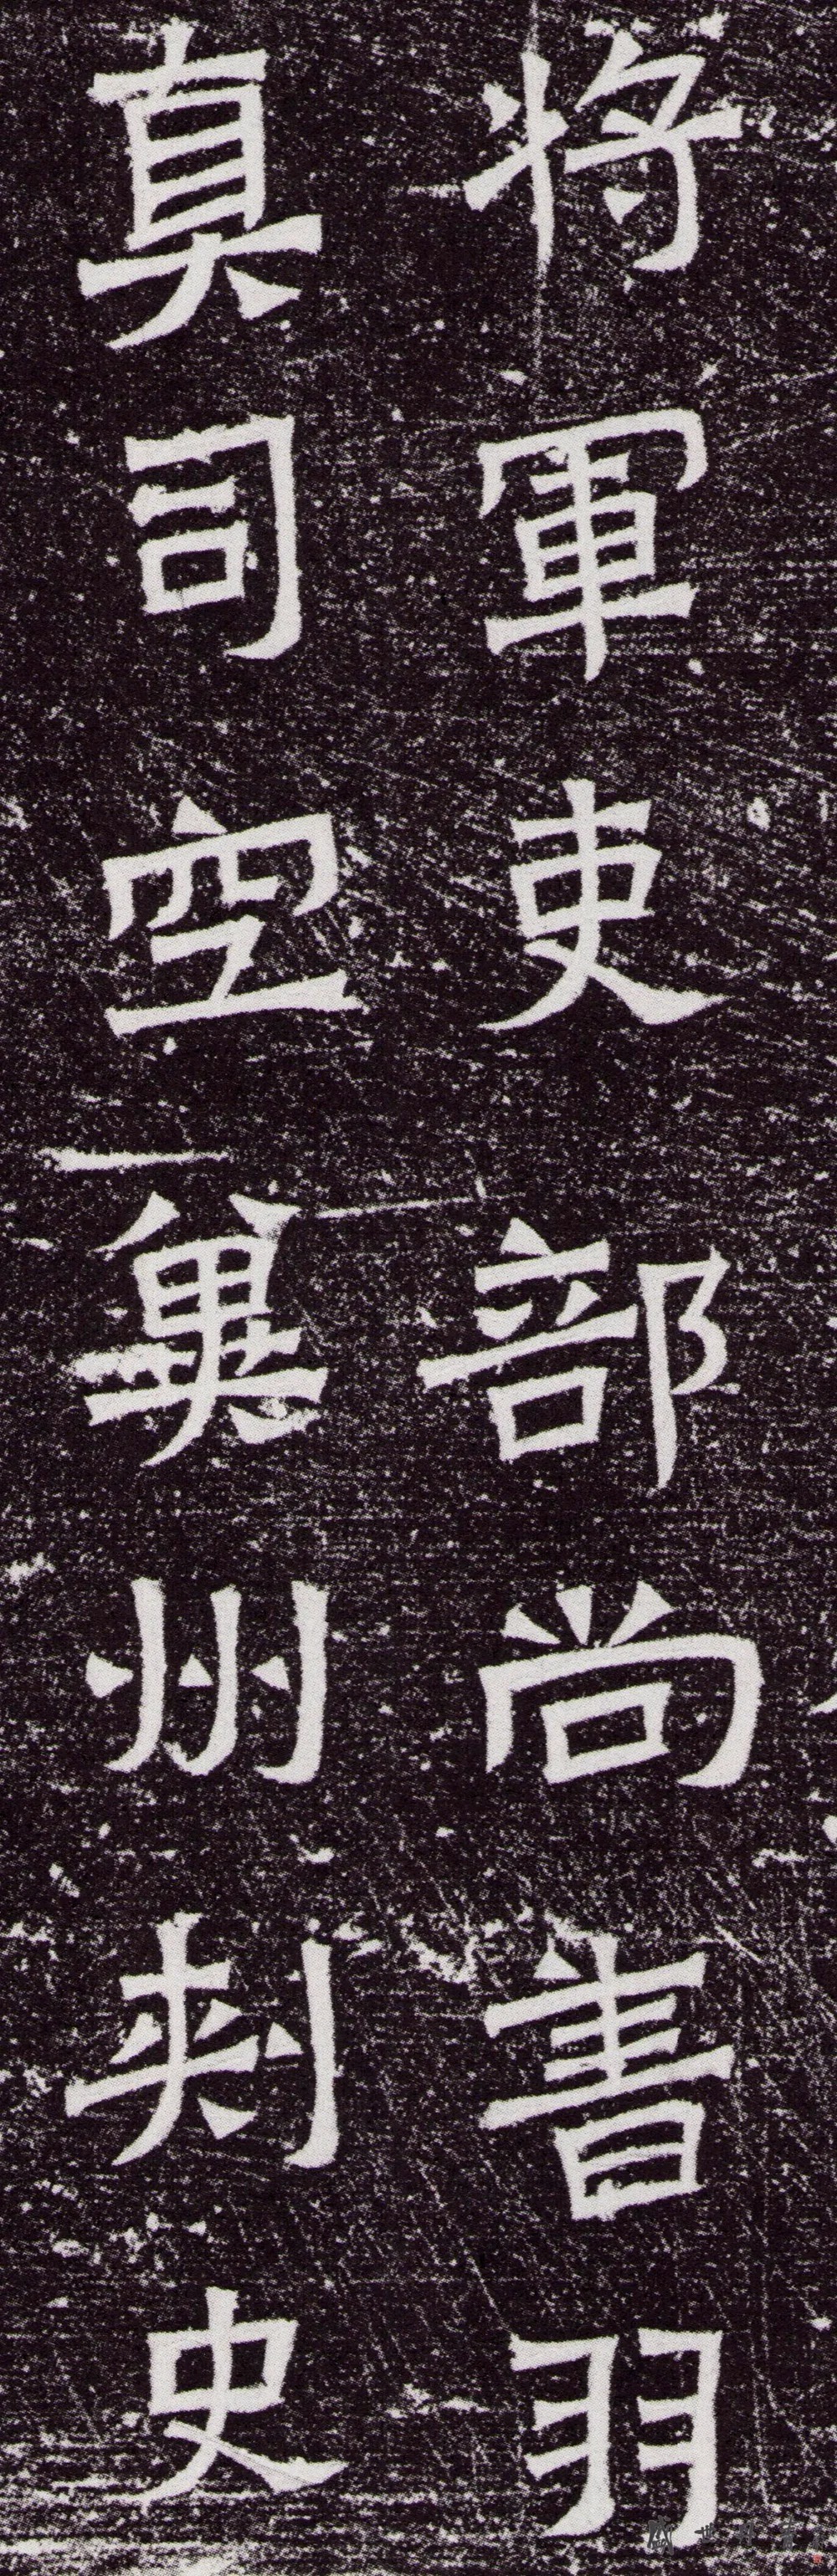 将軍吏部尚書羽
真司空冀州刺史